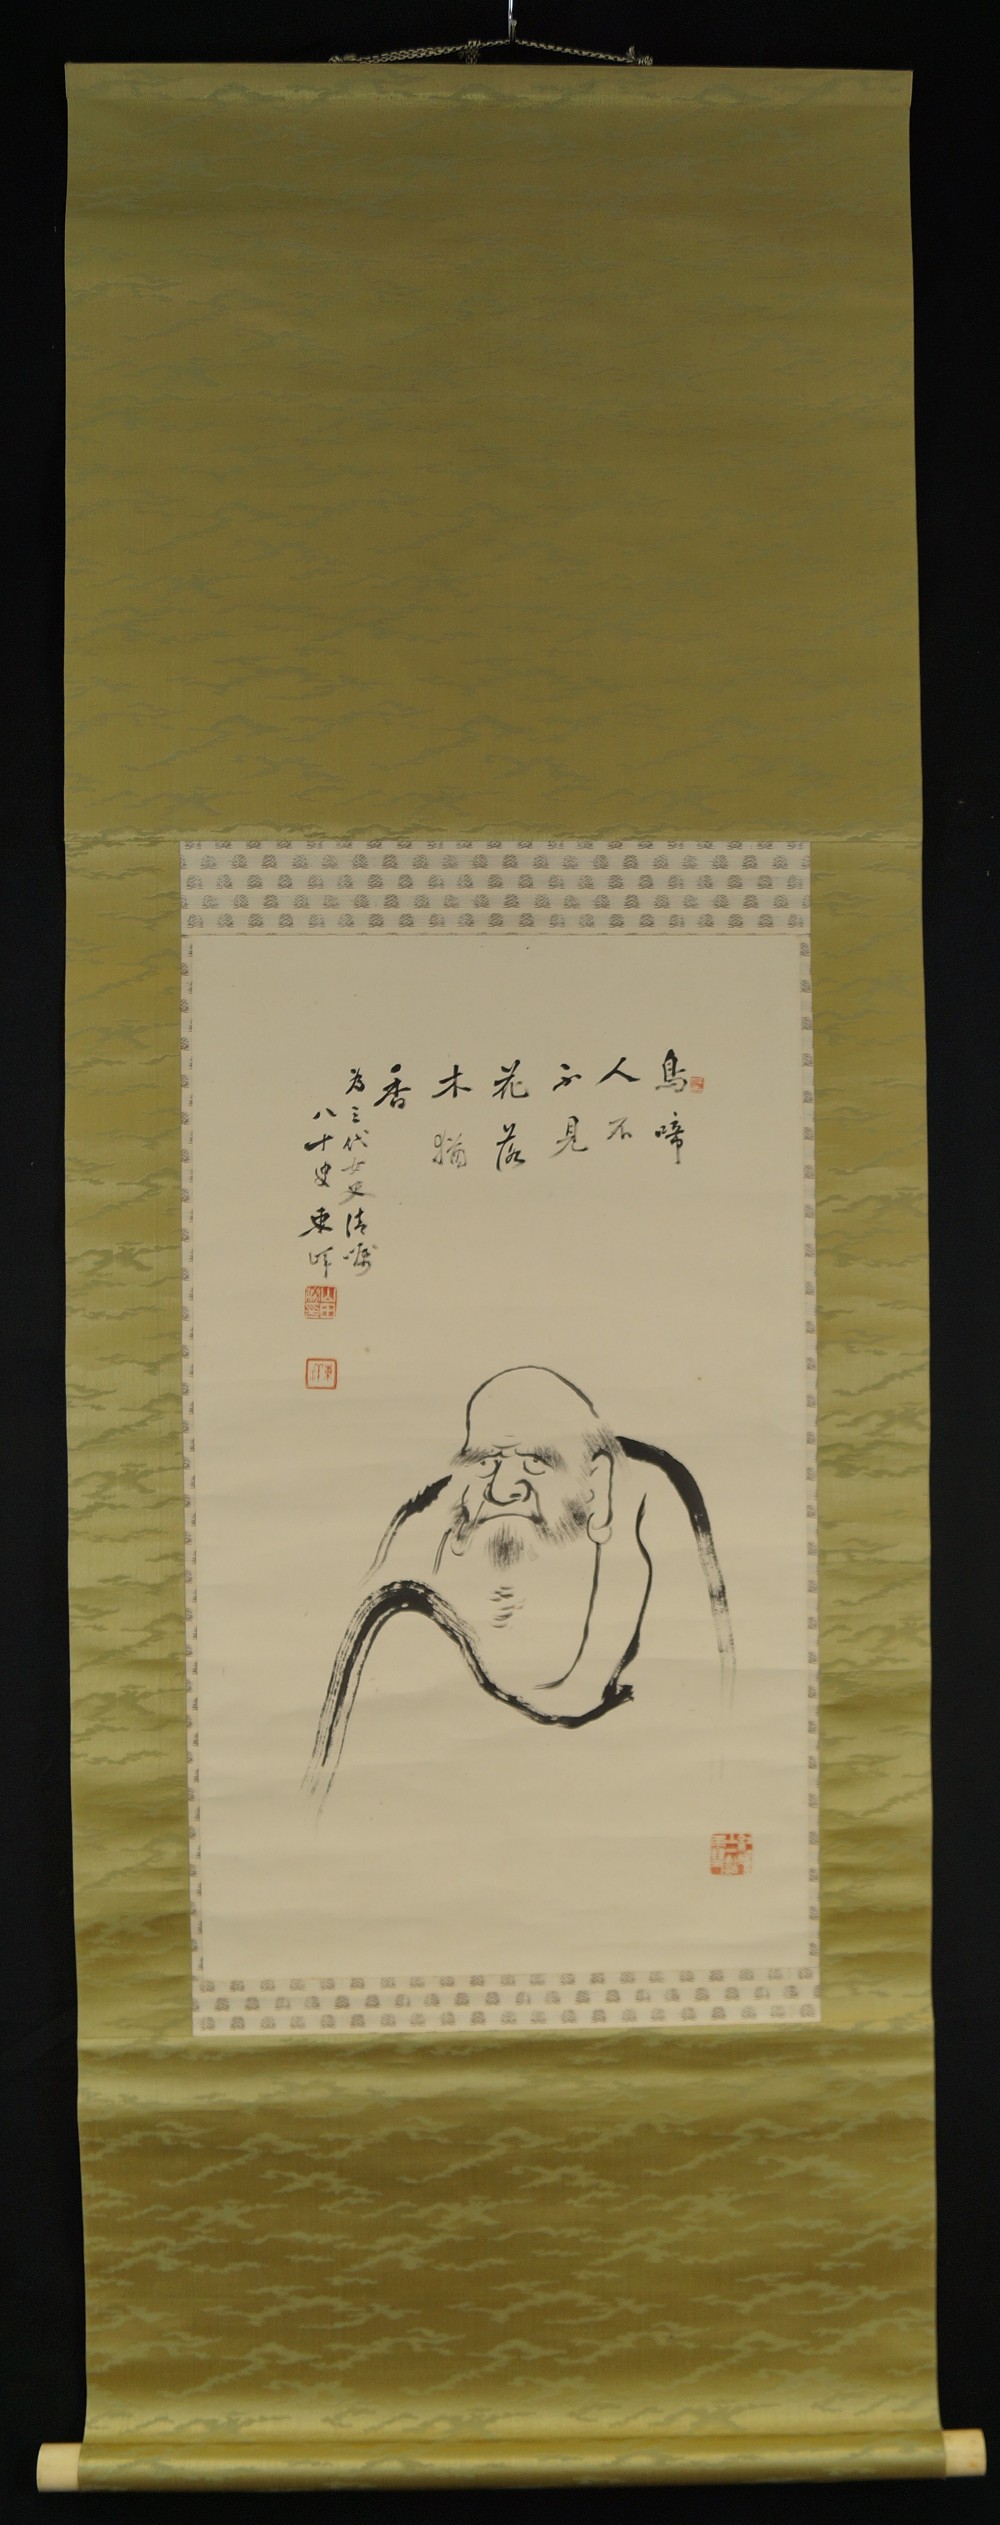 鳥啼
人不
不見
花落
木猶
香
為三代女史清嘱
八十叟東